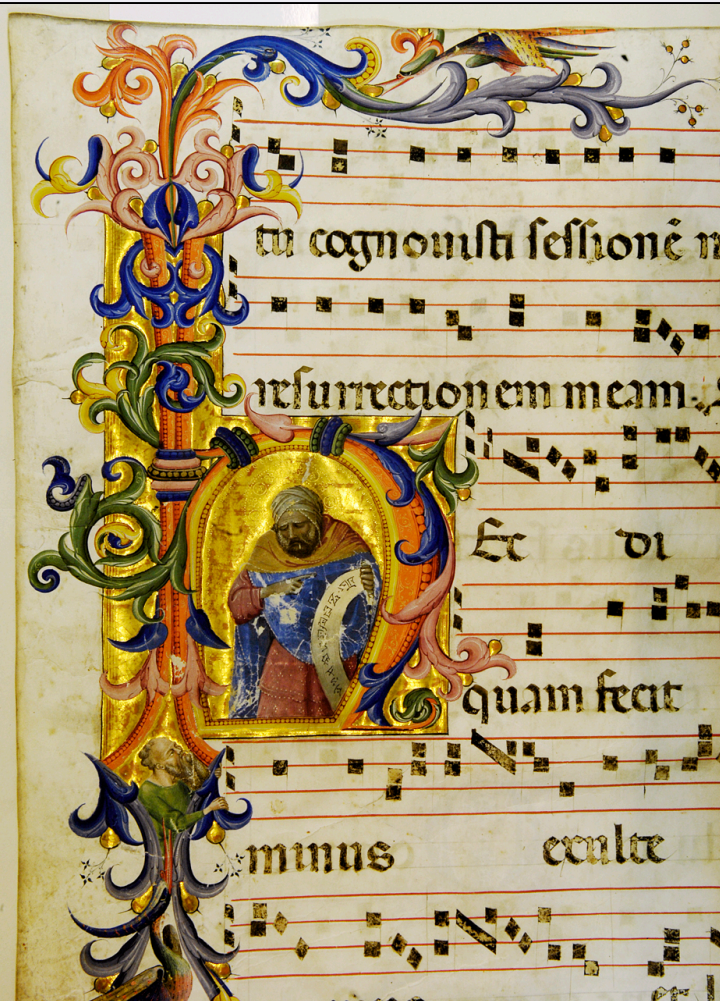 tu cognouisti sessionē
resurrectionem meam.
Ec di
quam fecit
minus exulte